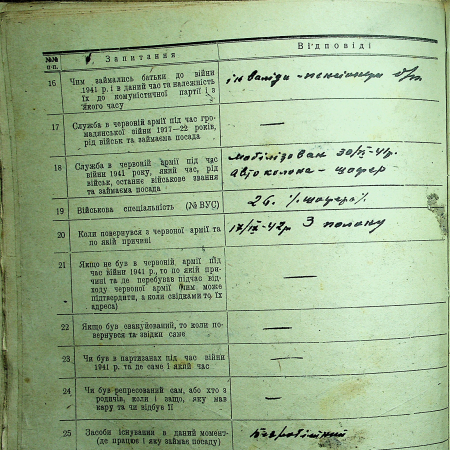 №№ п.п.
Запитання
Відповіді
16
Чим займались батьки до війни
1941 р. і в даний час та належність
їх до комуністичної партії і з
якого часу
інваліди - пенсіонери б/п.
17
Служба в червоній армії під час гро-
мадянської війни 1917—22 років,
рід військ та займаєма посада
—
18
Служба в червоній армії під час
війни 1941 року, який час, рід
військ, останнє військове звання
та займаєма посада
мобілізован 30/IX-41р.
автоколона - шофер
19
Військова спеціальність (№ ВУС)
26.
20
Коли повернувся з червоної армії та
по якій причині
17/IX-42р З полону
21
Якщо не був в червоній армії під
час війни 1941 р., то по якій при-
чині та де перебував підчас від-
ходу червоної армії (чим може
підтвердити, а коли свідками то їх
адреса)
—
22
Якщо був евакуйований, то коли по-
вернувся та звідки саме
—
23
Чи був в партизанах під час війни
1941 р. та де саме і який час
—
24
Чи був репресований сам, або хто з
родичів, коли і защо, яку мав
кару та чи відбув її
—
25
Засоби існування в даний момент
(де працює і яку займає посаду)
безробітний